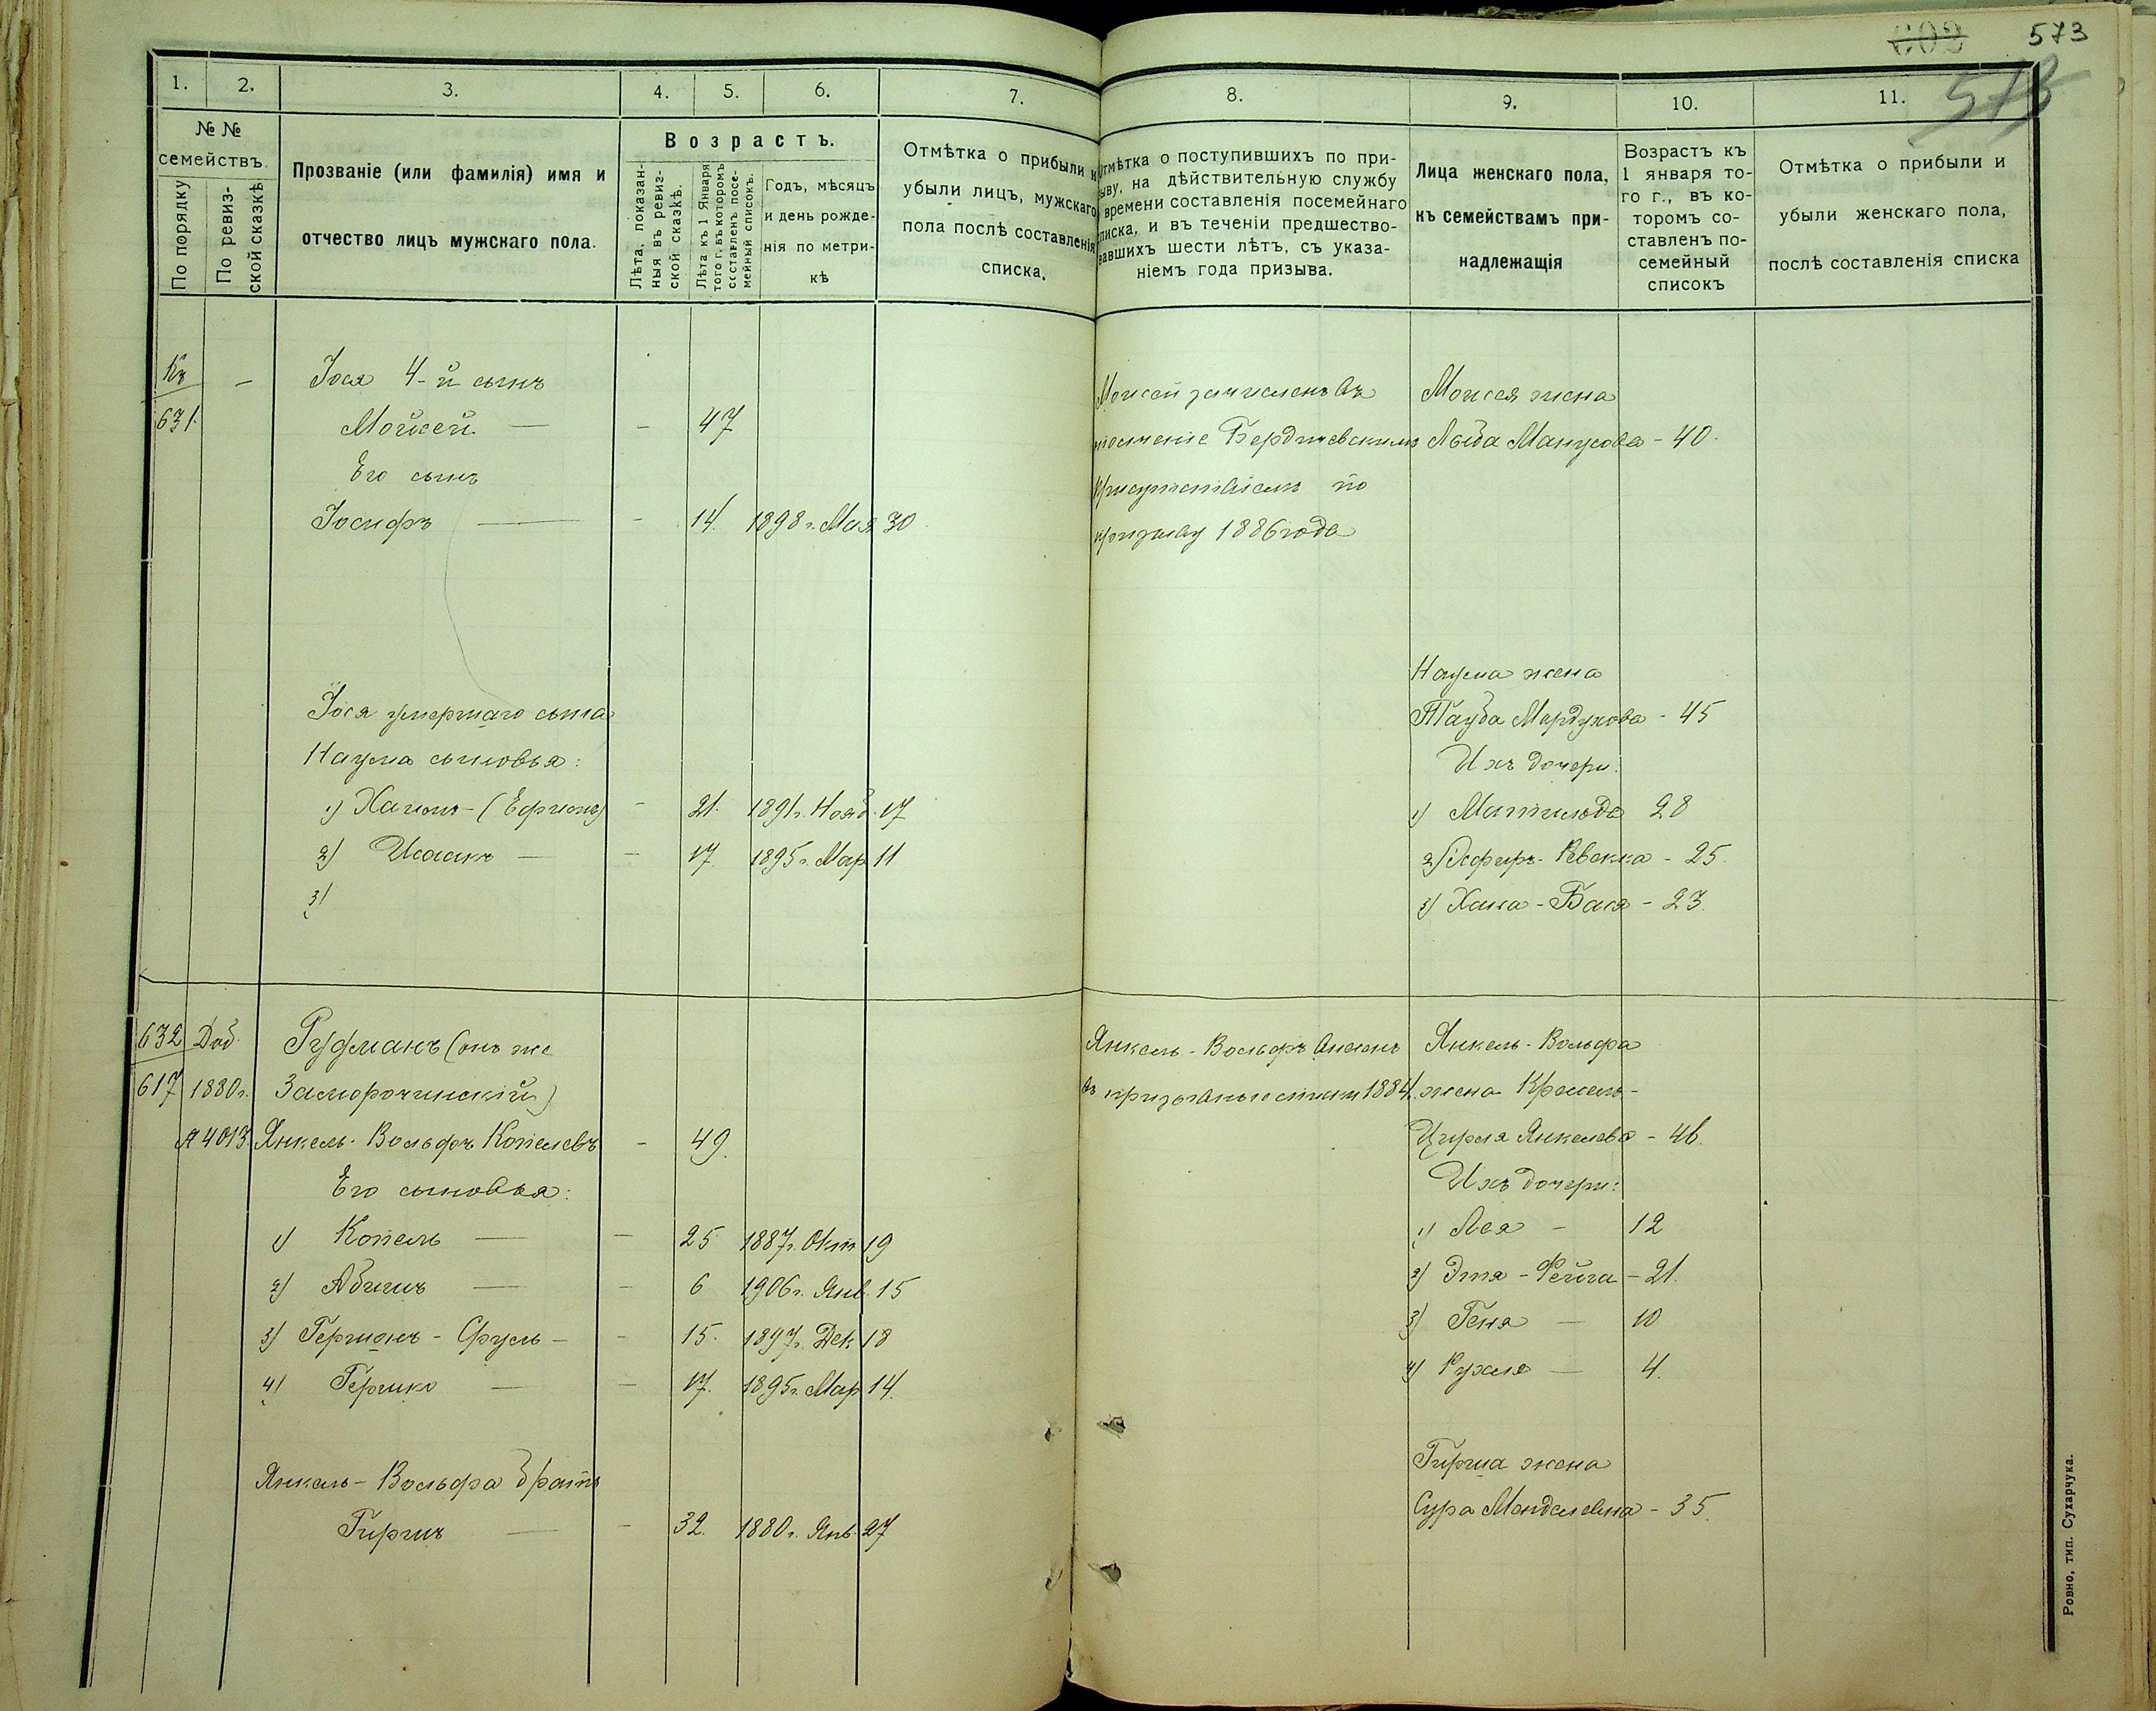 602 573
573
1. 2. 3. 4. 5. 6. 7. 8. 9. 10. 11.
№ №
семействъ.
По порядку
По ревиз-
ской сказкѣ
Прозваніе (или фамилія) имя и
отчество лицъ мужскаго пола.
Возрастъ.
Лѣта, показан-
ныя въ ревиз-
ской сказкѣ.
Лѣта къ 1 Января
того г. въ которомъ
составленъ посе-
мейный списокъ.
Годъ, мѣсяцъ
и день рожде-
нія по метри-
кѣ
Отмѣтка о прибыли и
убыли лицъ, мужскаго
пола послѣ составленія
списка.
Отмѣтка о поступившихъ по при-
зыву, на дѣйствительную службу
времени составленія посемейнаго
списка, и въ теченіи предшество-
вавшихъ шести лѣтъ, съ указа-
ніемъ года призыва.
Лица женскаго пола,
къ семействамъ при-
надлежащія
Возрастъ къ
1 января то-
го г., въ ко-
торомъ со-
ставленъ по-
семейный
списокъ
Отмѣтка о прибыли и
убыли женскаго пола,
послѣ составленія списка
Къ — Іося 4-й сынъ
631. Мойсей — — 47
Его сынъ
Іосифъ — — 14. 1898 г. Мая 30
Моисей зачисленъ въ
ополченіе Бердичевскимъ
Присутствіемъ по
призыву 1886 года
Моисея жена
Манусова - 40.
Іося умершаго сына
Наума сыновья:
1) Хаимъ - (Ефроимъ) — 21. 1891 г. Нояб. 17
2) Исаакъ — — 17 1895 г. Мар 11
3)
Наума жена
Тауба Мордухова - 45
Ихъ дочери:
1) Матильда 28
2) Эсфирь - Ревекка - 25.
3) Хана - Бася - 23.
632 Доб. Гуфманъ (онъ же
617 1880 г. Заморочинскій)
А 4013 Янкель-Вольфъ Копелевъ — 49.
Его сыновья:
1) Копель — — 25 1887 г. Окт 19
2) Абишъ — — 6 1906 г. Янв. 15
3) Гершонъ - Сруль — — 15. 1897 г. Дек 18
4) Гершко — — 17. 1895 г. Мар 14.
Янкель-Вольфа братъ
Гиршъ — — 32. 1880 г. Янв. 27
Янкель-Вольфъ внесенъ
въ призывные списки 1884 г.
Янкель-Вольфа
жена Крейзель-
Цирля Янкелева - 46.
Ихъ дочери:
1) Лея — 12
2) Этя - Фейга - 21.
3) Геня — 10
4) Рухля — 4.
Гирша жена
Сура Менделевна - 35.
Ровно, тип. Сухарчука.